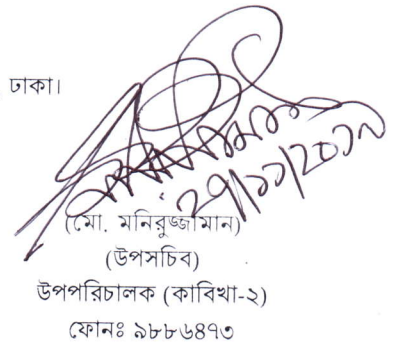 ঢাকা।
২৭/১১/২০১৯
(মো. মনিরুজ্জামান)
(উপসচিব)
উপপরিচালক (কাবিখা-২)
ফোনঃ ৯৮৮৬৪৭৩